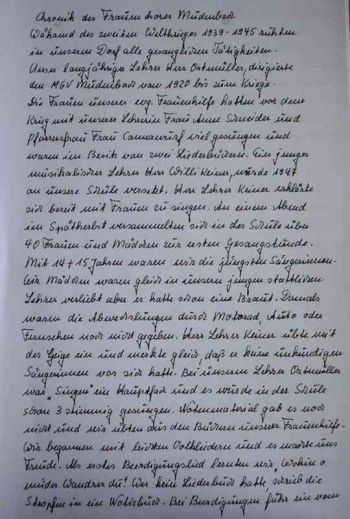 Chronik des Frauenchores Müdenbach
Während des zweiten Weltkrieges 1939-1945 ruhten
in unserem Dorf alle gesanglichen Tätigkeiten.
Unser langjähriger Lehrer Herr Ostmüller, dirigierte
den MGV Müdenbach von 1920 bis zum Kriege.
Die Frauen unserer evg. Frauenhilfe hatten vor dem
Krieg mit unserer Lehrerin Frau Anne Schneider und
Pfarrersfrau Frau viel gesungen und
waren im Besitz von zwei Liederbüchern. Ein junger
musikalischer Lehrer Herr Willi Keiner, wurde 1947
an unsere Schule versetzt. Herr Lehrer Keiner erklärte
sich bereit mit Frauen zu singen. An einem Abend
im Spätherbst versammelten sich in der Schule über
40 Frauen und Mädchen zur ersten Gesangstunde.
Mit 14+15 Jahren waren wir die jüngsten Sängerinnen.
Wir Mädchen waren gleich in unsern jungen stattlichen
Lehrer verliebt aber er hatte schon eine Braut. Damals
waren die Abwechslungen durch Motorrad, Auto oder
Fernsehen noch nicht gegeben. Herr Lehrer Keiner übte mit
der Geige ein und merkte gleich, daß er keine unkundigen
Sängerinnen vor sich hatte. Bei unserem Lehrer Ostmüller
war "Singen" ein Hauptfach und es wurde in der Schule
schon 3 stimmig gesungen. Notenmaterial gab es noch
nicht und wir übten aus den Büchern unserer Frauenhilfe.
Wir begannen mit leichten Volksliedern und es machte uns
Freude. Als erstes Beerdigungslied lernten wir, "Wohin o
müder Wanderer du". Wer kein Liederbuch hatte schrieb die
Strophen in ein Notizbuch. Bei Beerdigungen fuhr ein vom